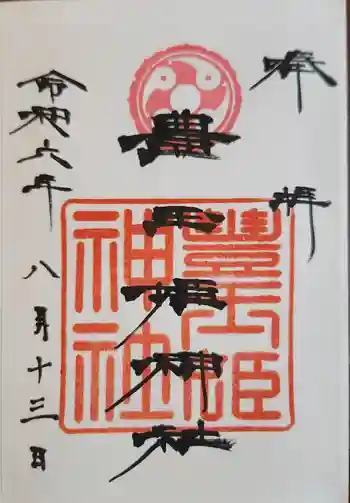 奉拝
豊玉姫神社
豊玉姫神社
令和六年 八月十三日